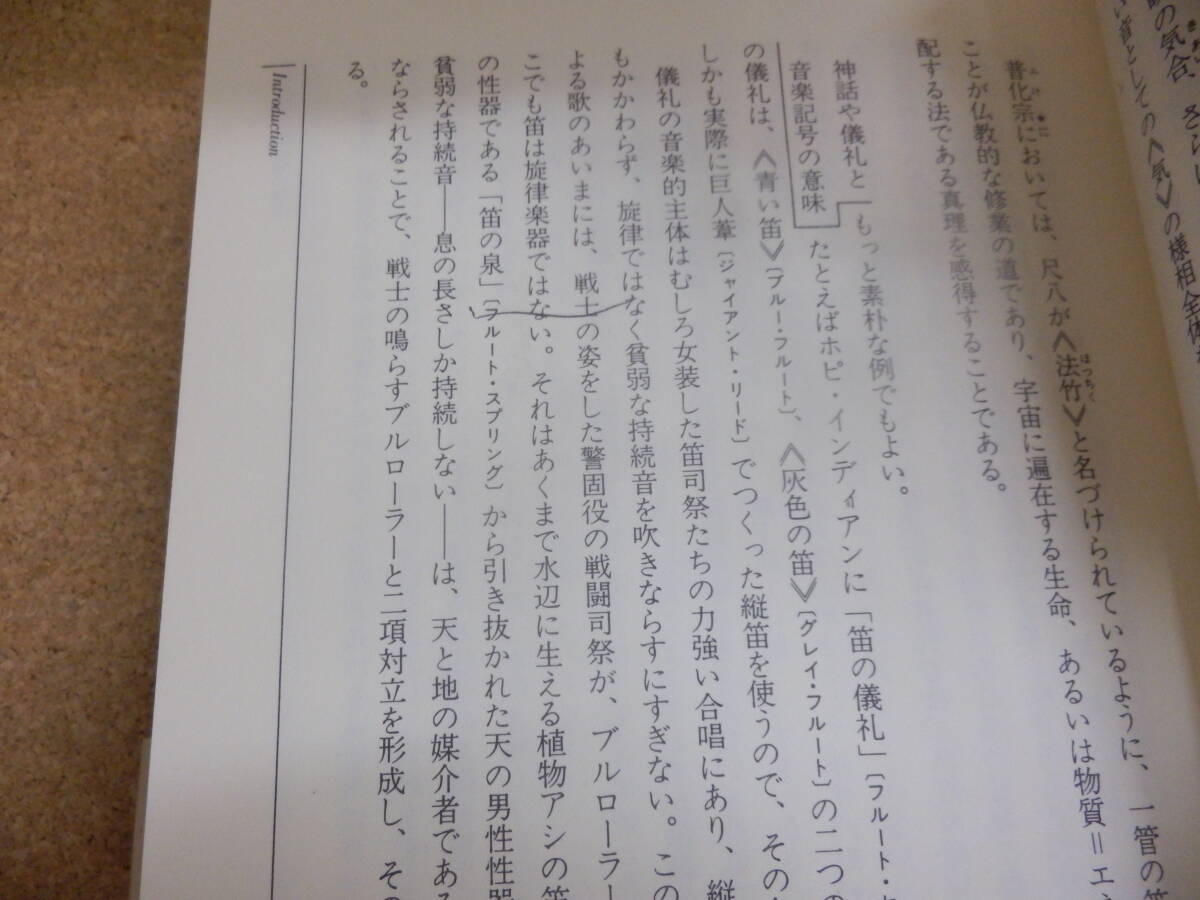 い音としての〈気〉の様相全体
普化宗においては、尺八が〈法竹〉と名づけられているように、一管の
ことが仏教的な修業の道であり、宇宙に遍在する生命、あるいは物質＝エ
配する法である真理を感得することである。
神話や儀礼と
音楽記号の意味
もっと素朴な例でもよい。
たとえばホピ・インディアンに「笛の儀礼」〔フルート・
の儀礼は、《青い笛》〔ブルー・フルート〕、《灰色の笛》〔グレイ・フルート〕の二つの
しかも実際に巨人葦〔ジャイアント・リード〕でつくった縦笛を使うので、その
儀礼の音楽的主体はむしろ女装した笛司祭たちの力強い合唱にあり、縦
もかかわらず、旋律ではなく貧弱な持続音を吹きならすにすぎない。この
よる歌のあいまには、戦士の姿をした警固役の戦闘司祭が、ブルローラー
こでも笛は旋律楽器ではない。それはあくまで水辺に生える植物アシの
の性器である「笛の泉」〔フルート・スプリング〕から引き抜かれた天の男性性器
貧弱な持続音——息の長さしか持続しない——は、天と地の媒介者である
ならされることで、戦士の鳴らすブルローラーと二項対立を形成し、その
る。
Introduction